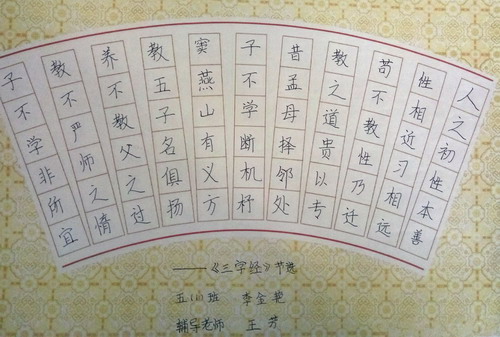 人之初性本善
性相近习相远
苟不教性乃迁
教之道贵以专
昔孟母择邻处
子不学断机杼
窦燕山有义方
教五子名俱扬
养不教父之过
教不严师之惰
子不学非所宜
——《三字经》节选
五(1)班 李金艳
辅导老师 王芳